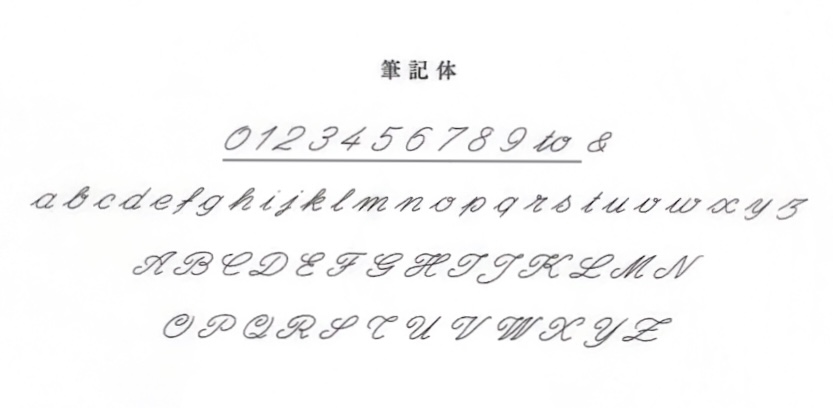 筆記体
0 1 2 3 4 5 6 7 8 9 to &
a b c d e f g h i j k l m n o p q r s t u v w x y z
A B C D E F G H I J K L M N
O P Q R S T U V W X Y Z